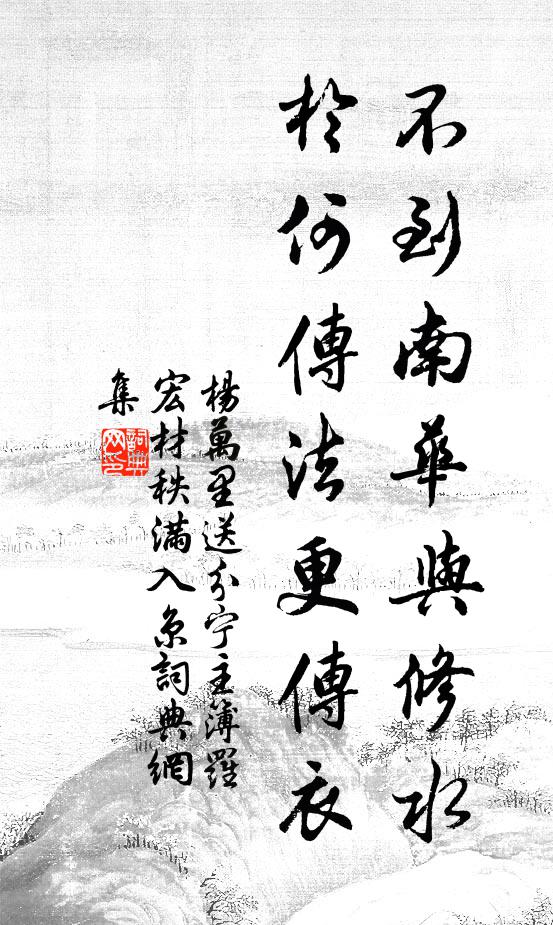 不到南華與修水
於何傳法更傳衣
楊萬里送分宁主簿羅
宏材秩滿入京詞典網
集
詞典
网